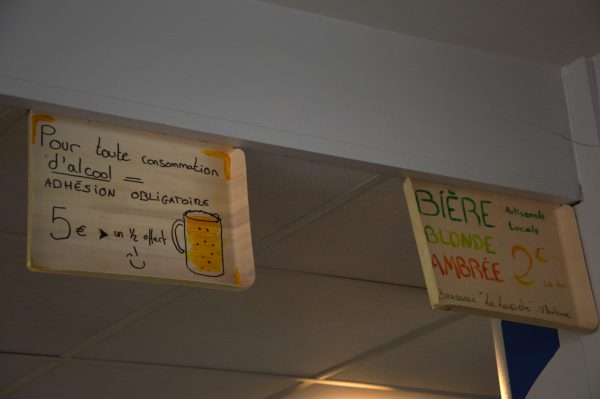 Pour toute consommation
d'alcool =
ADHÉSION OBLIGATOIRE
5€ → un ½ offert
BIÈRE Artisanale
Locale
BLONDE
AMBRÉE 2€